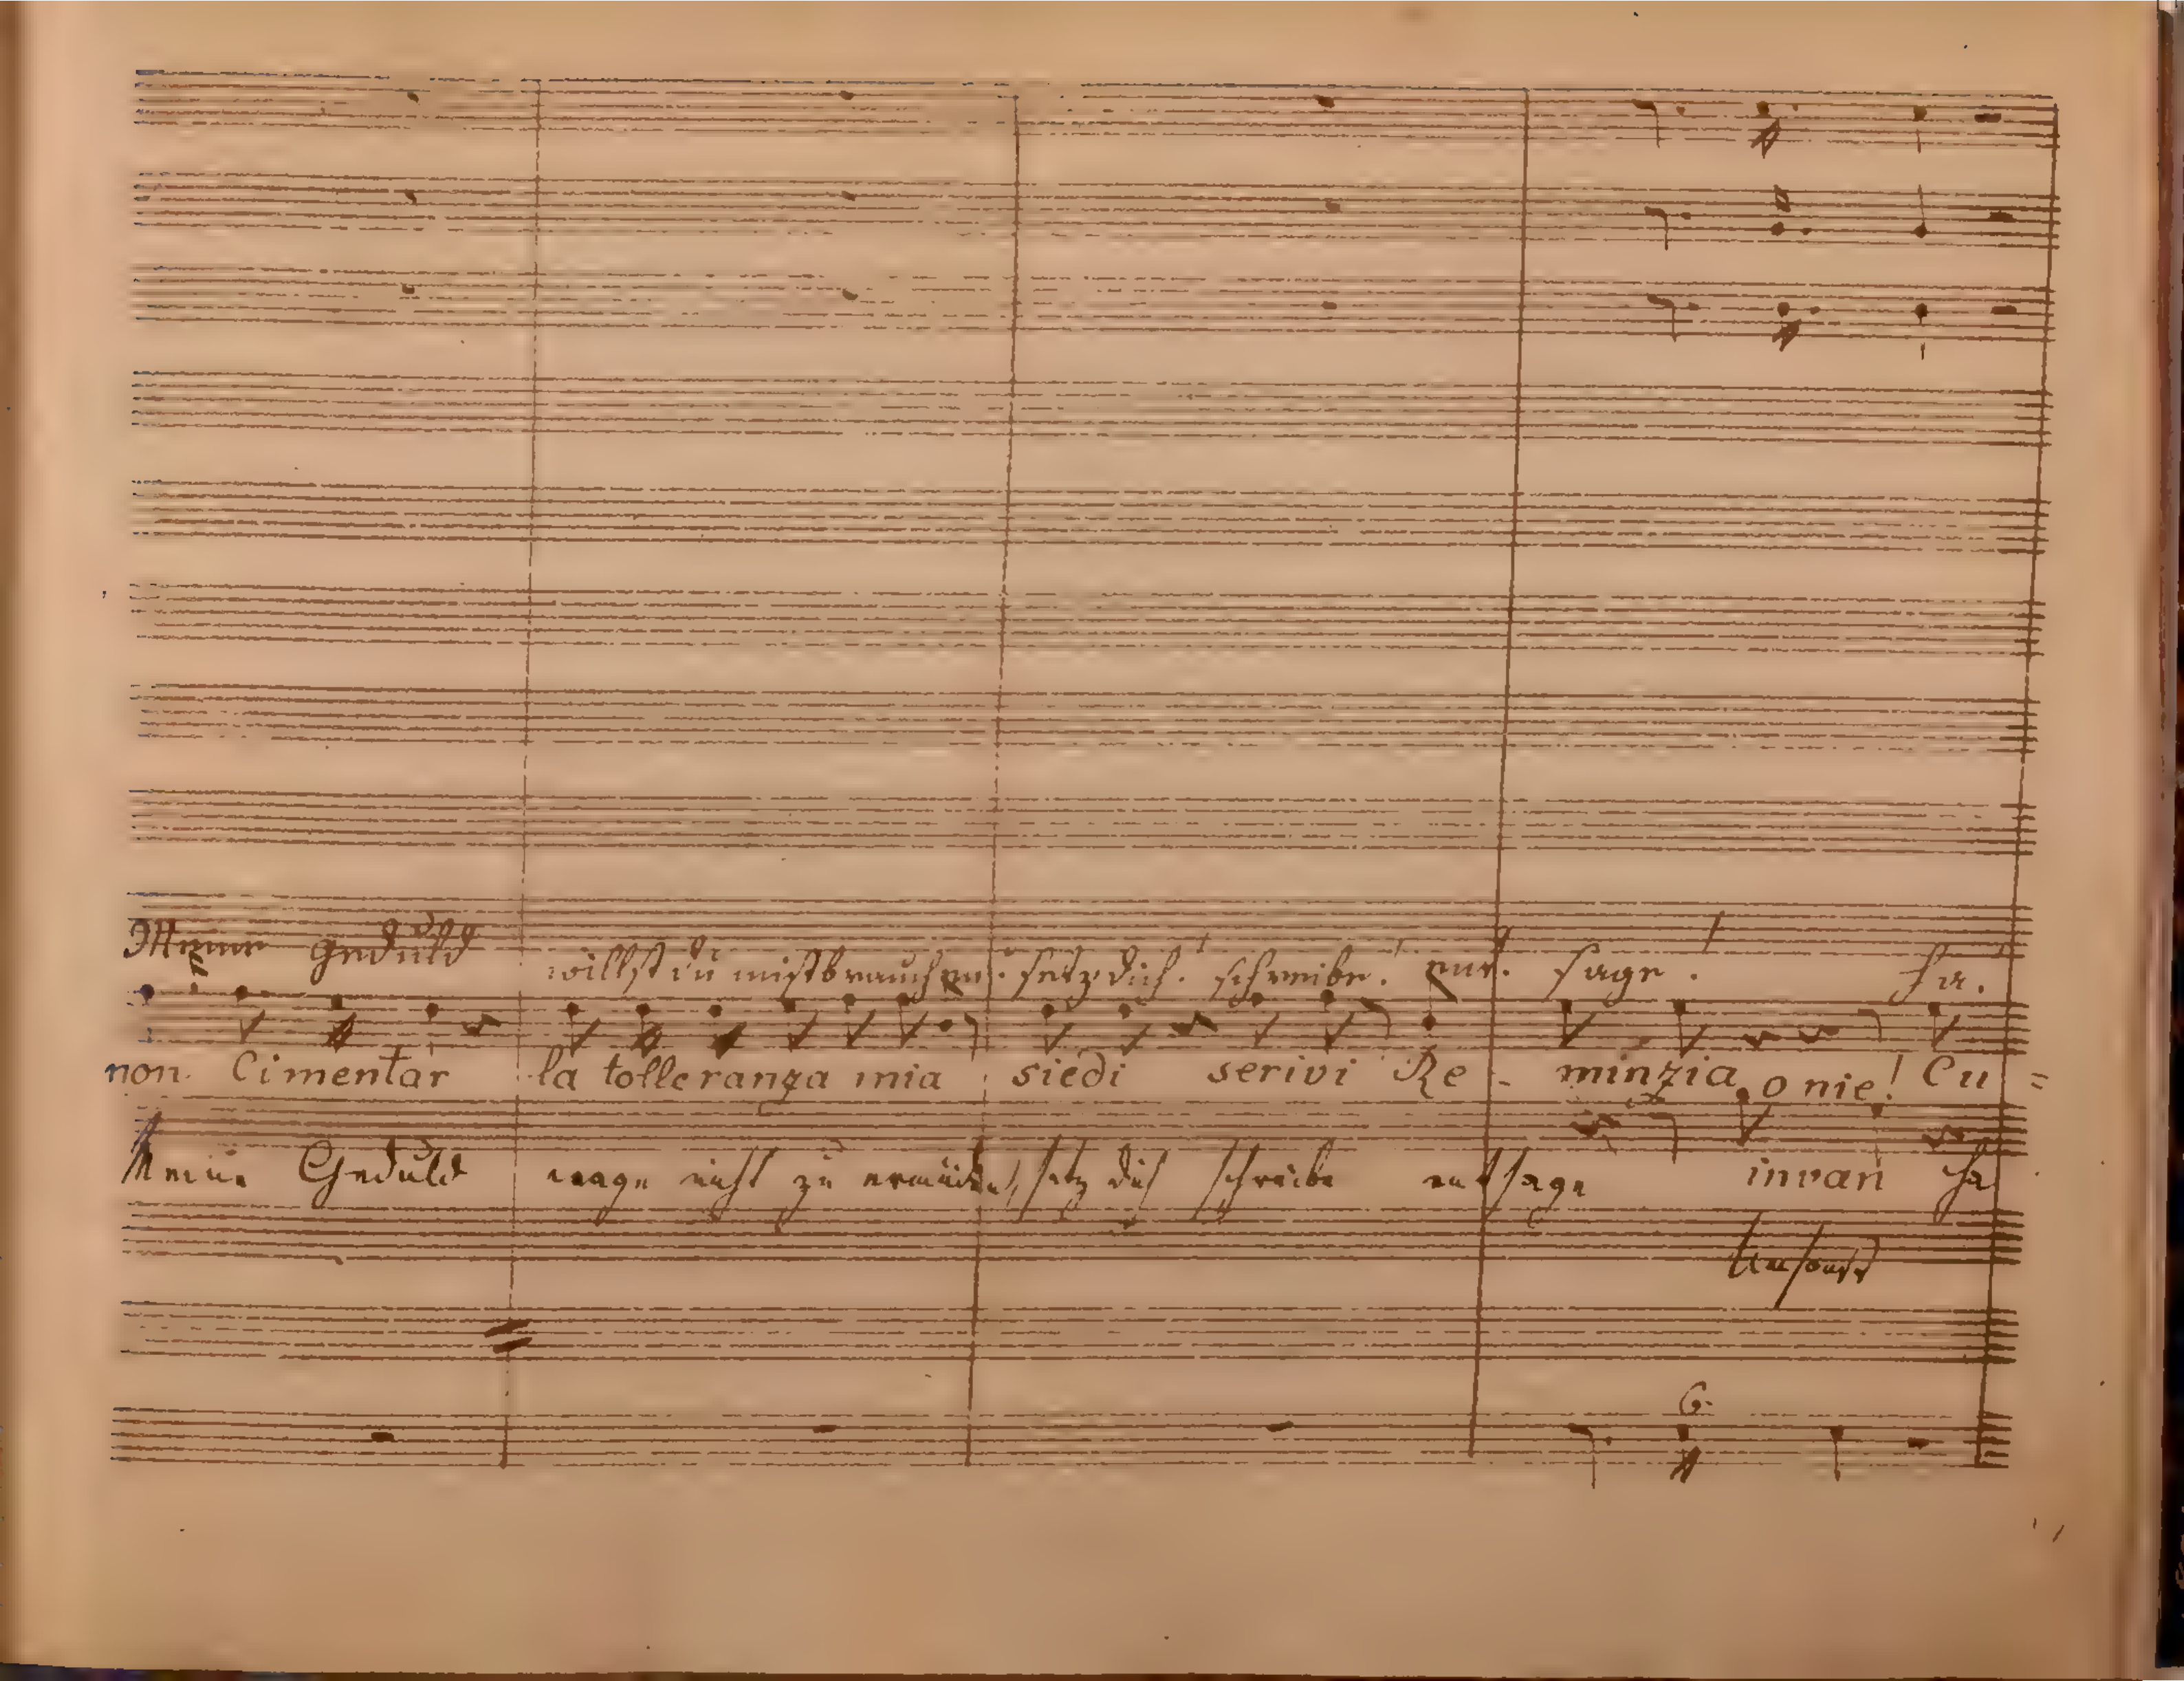 Meine Geduld willst du mißbrauchen. setz dich! schreibe! ent. sage! Ha!
non Cimentar la tolleranza mia siedi scrivi Re - minzia o nie! Cu =
Meine Geduld wage nicht zu ermüden, setz dich schreibe entsage invan Ha
Umsonst
6.